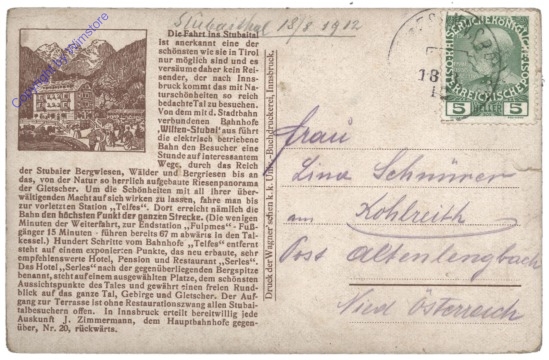 Stubaital 18/8 1912
Die Fahrt ins Stubaital
ist anerkannt eine der
schönsten wie sie in Tirol
nur möglich sind und es
versäume daher kein Rei-
sender, der nach Inns-
bruck kommt das mit Na-
turschönheiten so reich
bedachte Tal zu besuchen.
Von dem mit d. Stadtbahn
verbundenen Bahnhofe
„Wilten-Stubai" aus führt
die elektrisch betriebene
Bahn den Besucher eine
Stunde auf interessantem
Wege, durch das Reich
der Stubaier Bergwiesen, Wälder und Bergriesen bis an
das, von der Natur so herrlich aufgebaute Riesenpanorama
der Gletscher. Um die Schönheiten mit all ihrer über-
wältigenden Macht auf sich wirken zu lassen, fahre man bis
zur vorletzten Station „Telfes". Dort erreicht nämlich die
Bahn den höchsten Punkt der ganzen Strecke. (Die wenigen
Minuten der Weiterfahrt, zur Endstation „Fulpmes" - Fuß-
gänger 15 Minuten - führen bereits 67 m abwärts in den Tal-
kessel.) Hundert Schritte vom Bahnhofe „Telfes" entfernt
steht auf einem exponierten Punkte, das neu erbaute, sehr
empfehlenswerte Hotel, Pension und Restaurant „Serles".
Das Hotel „Serles" nach der gegenüberliegenden Bergspitze
benannt, steht auf einem ausgewählten Platze, dem schönsten
Aussichtspunkte des Tales und gewährt einen freien Rund-
blick auf das ganze Tal, Gebirge und Gletscher. Der Auf-
gang zur Terrasse ist ohne Restaurationszwang allen Stubai-
talbesuchern offen. In Innsbruck erteilt bereitwillig jede
Auskunft J. Zimmermann, dem Hauptbahnhofe gegen-
über, Nr. 20, rückwärts.
Druck der Wagner'schen k. k. Univ.-Buchdruckerei, Innsbruck.
5 HELLER 5
18
Frau
Lina Schnürer
in Kohlreith
Post Altenlengbach
Nied Österreich
Copyright by Oldthing